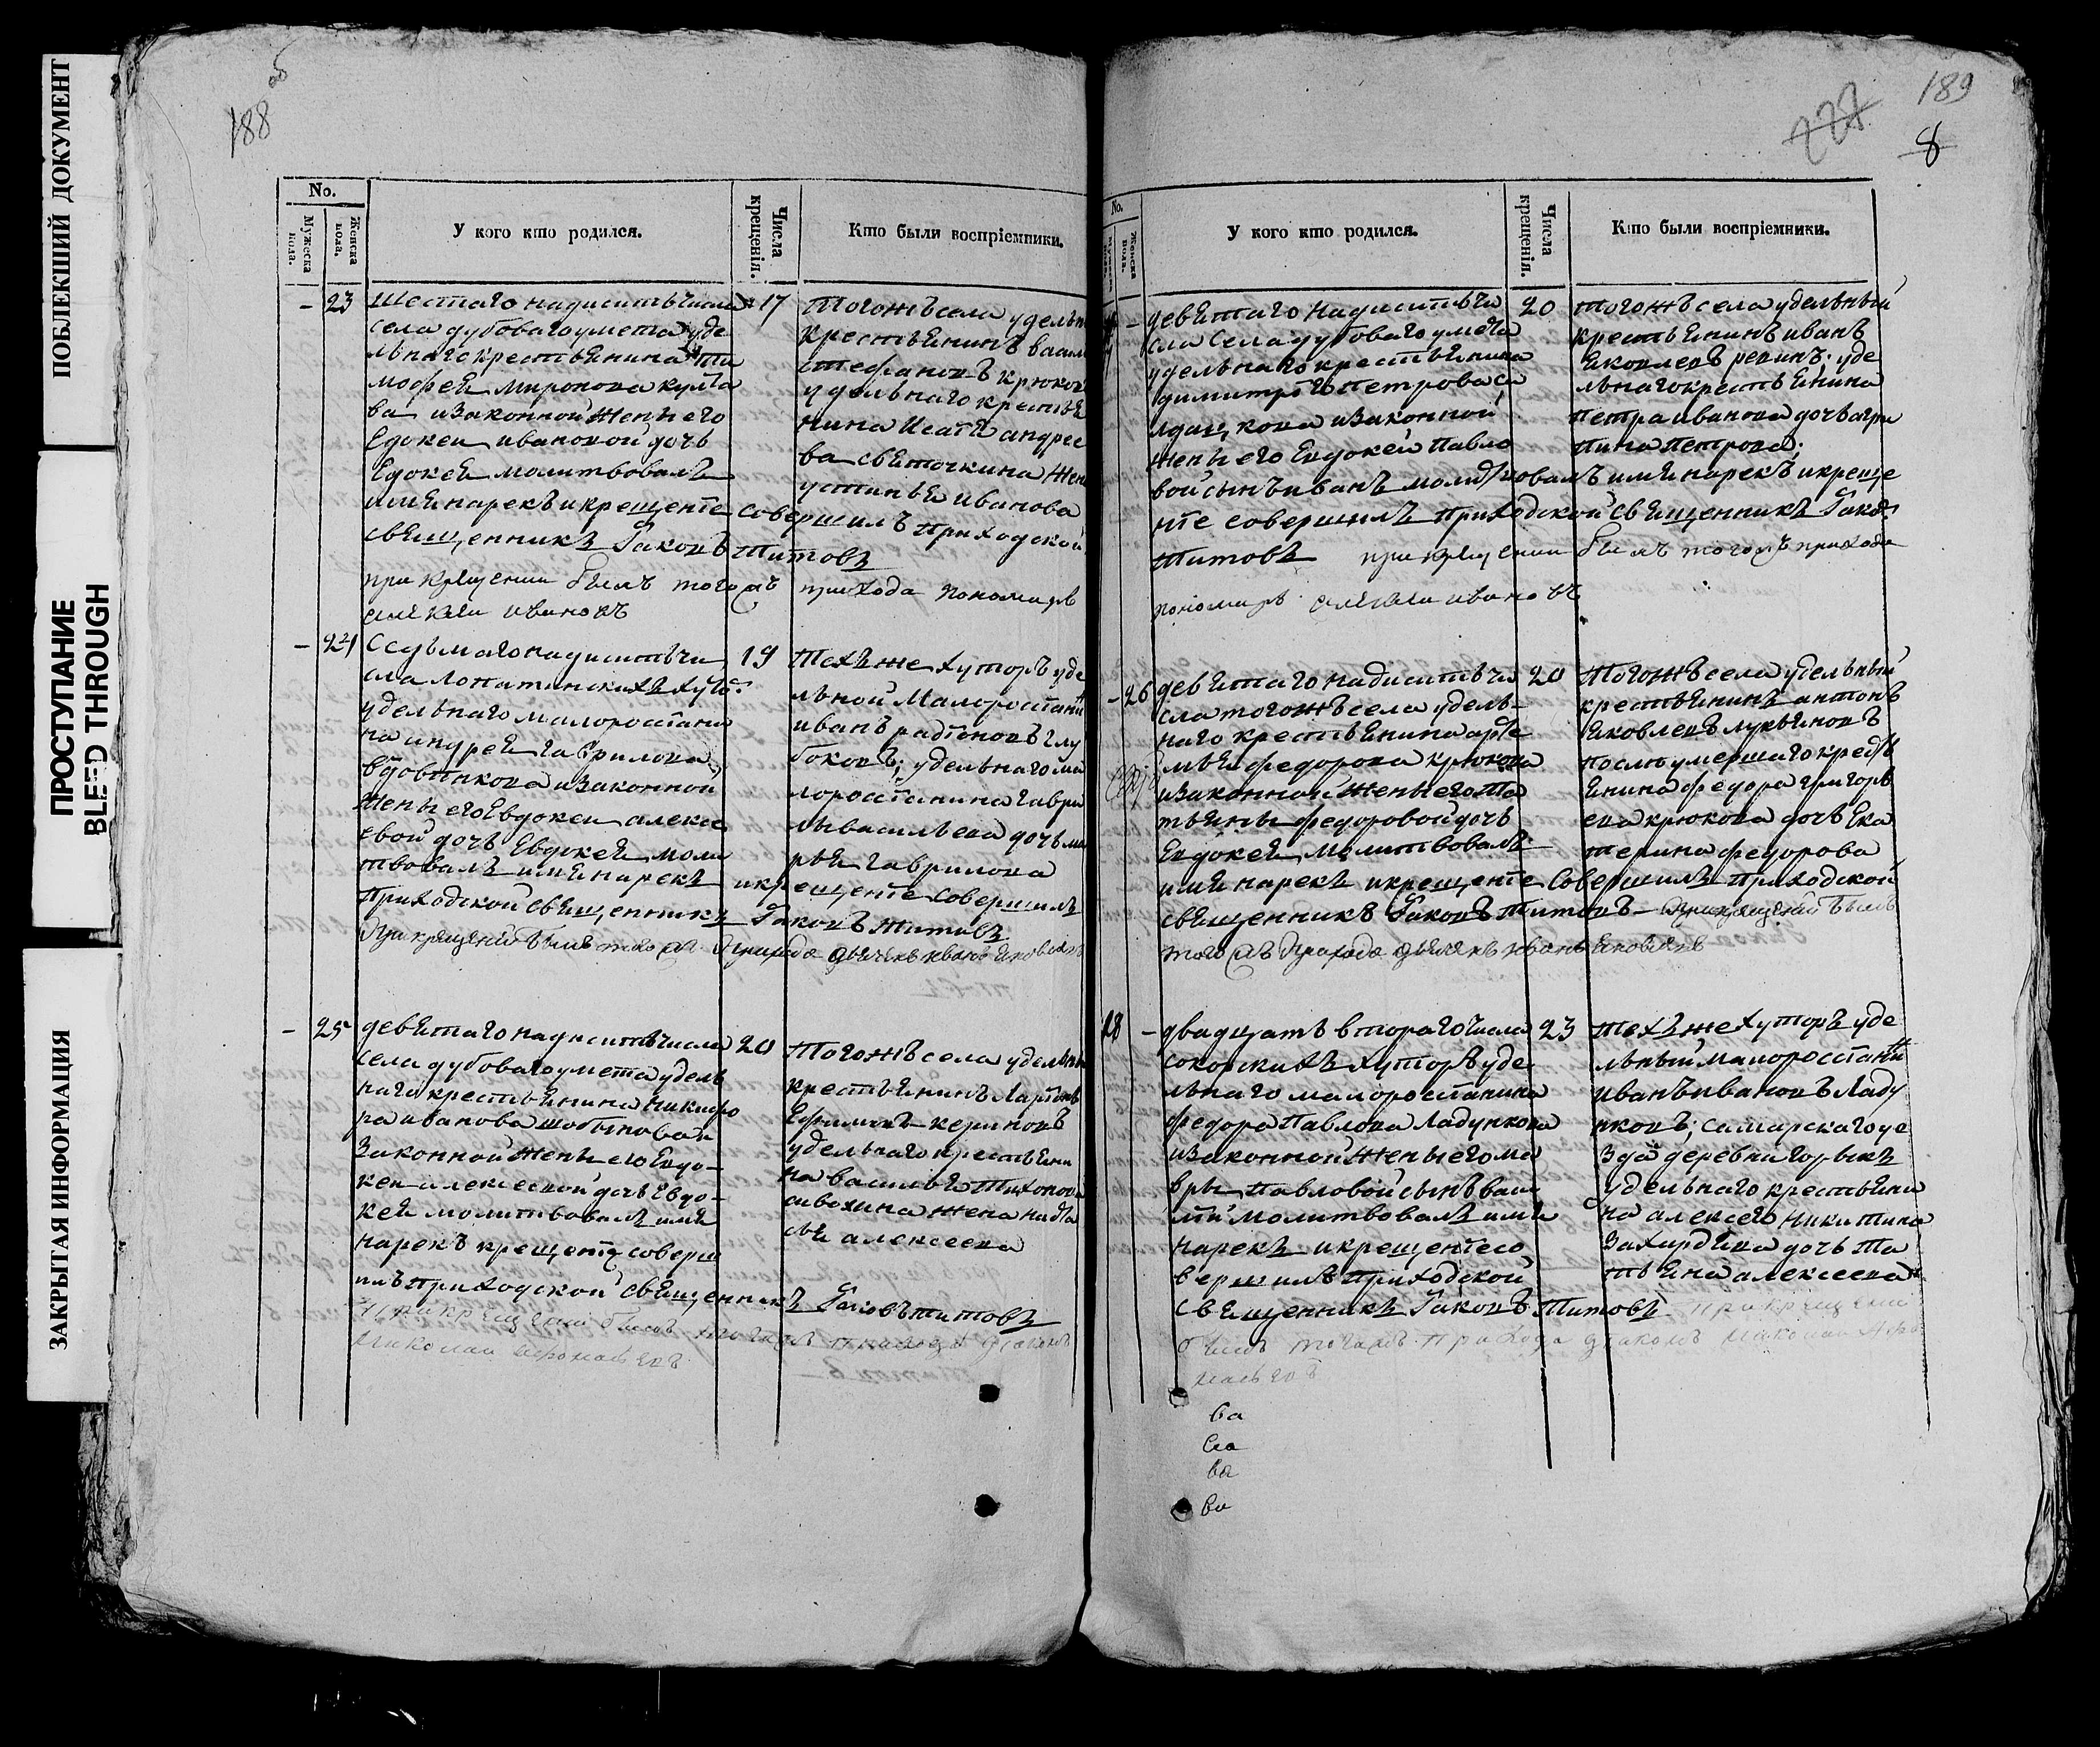 ПОБЛЕКШИЙ ДОКУМЕНТ
ПРОСТУПАНИЕ
BLEED THROUGH
ЗАКРЫТАЯ ИНФОРМАЦИЯ
188
об
No.
Мужеска пола.
Женска пола.
У кого кто родился.
Числа крещенія.
Кто были воспріемники.
– 23
Шестаго надцать числа
села дубоваго умета уде
льнаго крестьянина ти
мофея миронова
ва изаконной жены его
Едокеи ивановой дочь
Едокея молитвовалъ
имя нарекъ и крещение совершилъ приходской
священникъ Іаковъ Титовъ
при крещении былъ тогожъ прихода пономарь
алексеи ивановъ
17
Тогожъ села удельн
крестьянинъ васил
стефановъ крюков
удельнаго крестья
нина Исаія андрее
ва светочкина жен
устинья иванова
– 24
Седьмаго надцать чи
сла лопатинскихъ хуто
удельнаго малоросіяни
на андрея гаврилова
вдовинкова изаконной
жены его Евдокеи алекс
евой дочь Евдокея моли
твовалъ имя нарекъ и крещеніе совершилъ
приходской священникъ Іаковъ Титовъ
При крещеніи былъ тогожъ прихода дьячекъ иванъ яковлевъ
19
Техъ же хуторъ уде
льной малоросіяни
иванъ радіоновъ глу
боковъ; удельнаго ма
лоросіанина гаври
лы васильева дочь ма
рья гаврилова
– 25
девятаго надцать числа
села дубоваго умета удель
наго крестьянина никифо
ра иванова
законной жены его Евдо-
кеи алексеевой дочь Евдо-
кея молитвовалъ имя
нарекъ крещеніе соверш
илъ приходской священникъ Іаковъ титовъ
При крещении былъ тогожъ прихода диаконъ
николаи афонасьевъ
20
Тогожъ села удельны
крестьянинъ Ларіонъ
Ефимовъ
удельнаго крестьяни
на василья Тихонова
сивохина жена наста
сья алексеева
189
8
No.
Женска пола.
У кого кто родился.
Числа крещенія.
Кто были воспріемники.
девятаго надцать чи
сла села дубоваго умета
удельнаго крестьянина
димитрія петрова са
лдацкова изаконной
жены его Евдокеи Павло
вой сынъ иванъ молитвовалъ имя нарекъ и креще
ніе совершилъ приходской священникъ Іаков
Титовъ при крещении былъ тогожъ прихода
пономарь алексеи ивановъ
20
Тогожъ села удельный
крестьянинъ иванъ
Яковлевъ репинъ; уде
льнаго крестьянина
петра иванова дочь агри
пина петрова;
– 26
девятаго надцать чи
сла тогожъ села удель-
наго крестьянина арте
мья федорова крюкова
изаконной жены его Та
тьяны федоровой дочь
Евдокея молитвовалъ
имя нарекъ и крещеніе совершилъ приходской
священникъ Іаковъ Титовъ – При крещеніи былъ
тогожъ прихода дьячекъ иванъ яковлевъ
20
Тогожъ села удельный
крестьянинъ антонъ
Яковлевъ лукьяновъ
после умершаго кресть
янина федора григорь
ева крюкова дочь Ека
терина федорова
28 –
двадцать втораго числа
сокорскихъ хуторъ уде
льнаго малоросіанина
федора Павлова Ладункова
изаконной жены его ма
вры павловой сынъ васи
лій молитвовалъ имя
нарекъ и крещеніе со
вершилъ приходской
священникъ Іаковъ Титовъ при крещении
былъ тогожъ прихода диаконъ николаи афо
насьевъ
23
техъ же хуторъ уде
льный малоросіанин
иванъ ивановъ Ладу
нковъ; самарскаго уе
зда деревни горекъ
удельнаго крестьяни
на алексея никитина
Захарова дочь Та
тьяна алексеева
ва
ва
ва